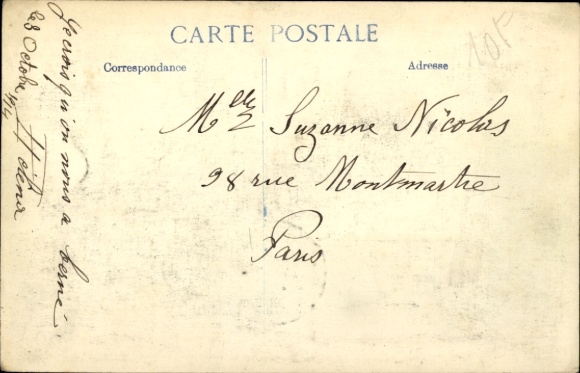 CARTE POSTALE
Correspondance
Adresse
105
Melle Suzanne Nicolas
98 rue Montmartre
Paris
Je crois qu'on nous a berné
28 Octobre